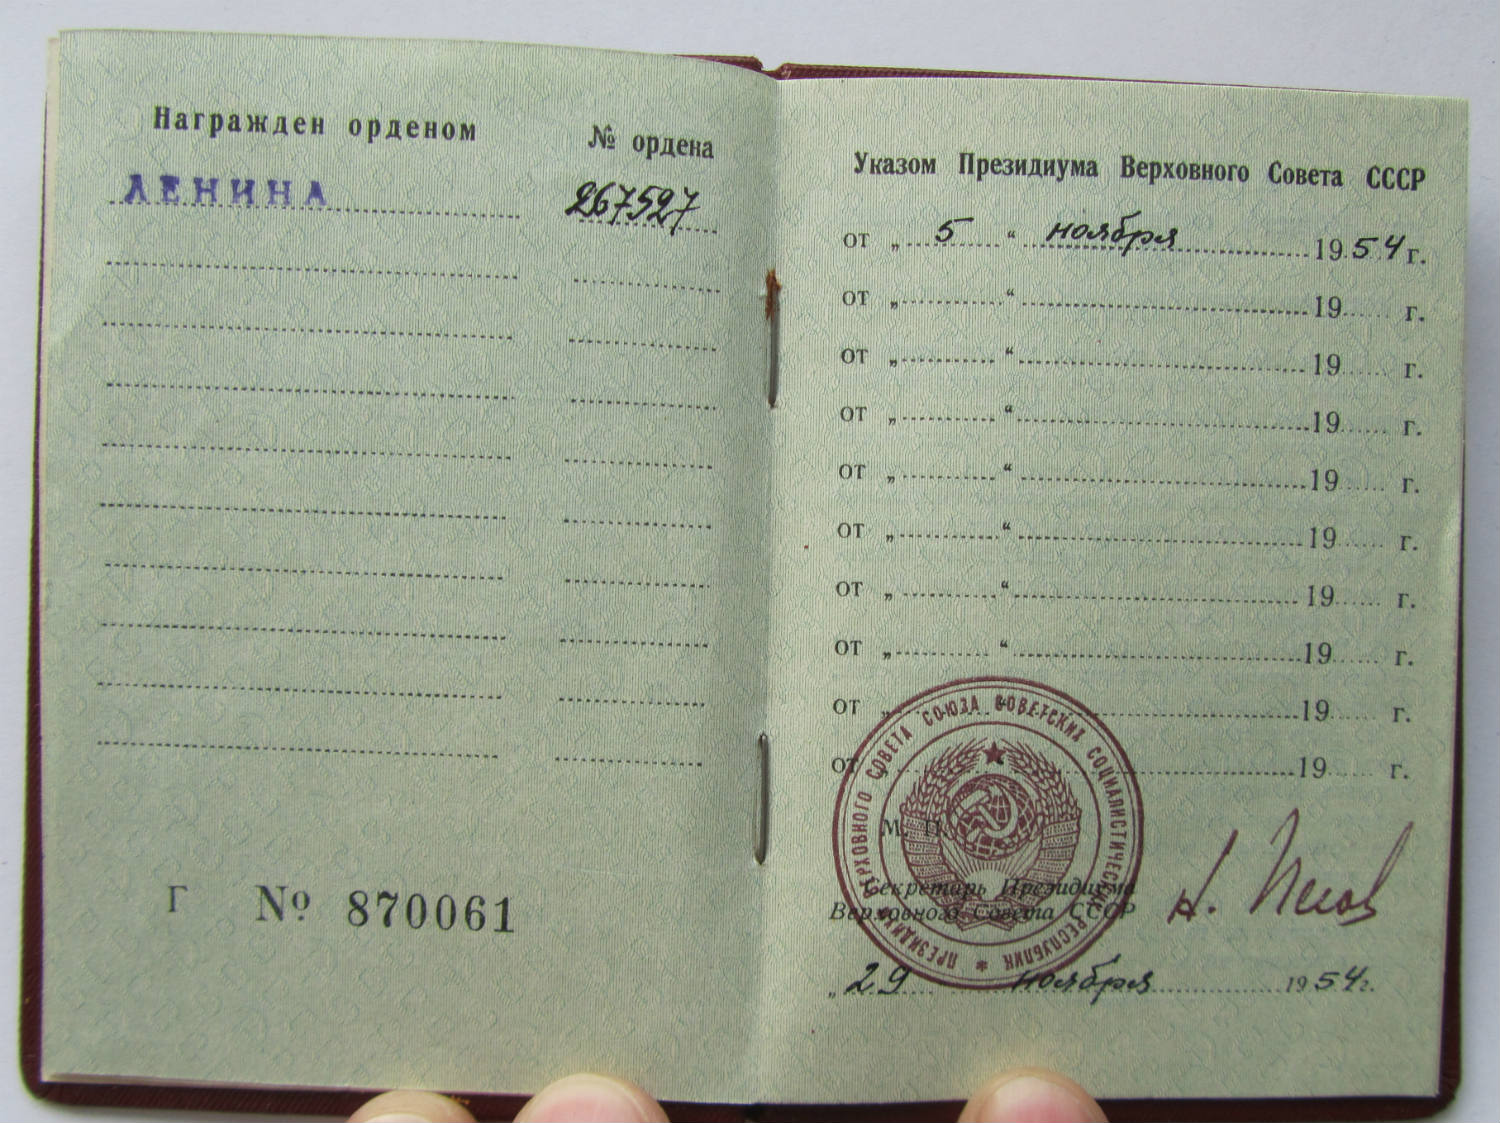 Награжден орденом № ордена
ЛЕНИНА 267527
Г № 870061
Указом Президиума Верховного Совета СССР
от „ 5 “ ноября 1954 г.
от „ “ 19 г.
от „ “ 19 г.
от „ “ 19 г.
от „ “ 19 г.
от „ “ 19 г.
от „ “ 19 г.
от „ “ 19 г.
от „ 19 г.
от 19 г.
М. П.
Секретарь Президиума
Верховного Совета СССР
Н. Пегов
„ 29 ноября 1954 г.
ПРЕЗИДИУМ ВЕРХОВНОГО СОВЕТА СОЮЗА СОВЕТСКИХ СОЦИАЛИСТИЧЕСКИХ РЕСПУБЛИК